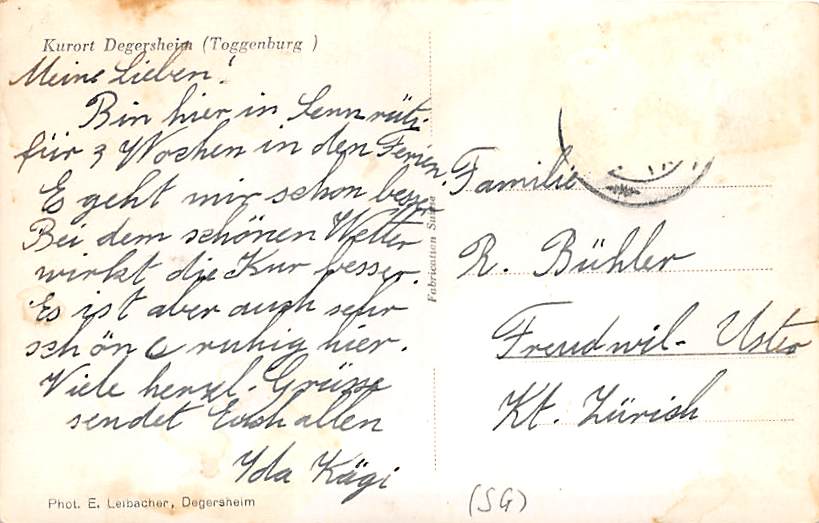 Kurort Degersheim (Toggenburg )
Meine Lieben!
Bin hier in Sennrüti
für 3 Wochen in den Ferien.
Es geht mir schon besser
Bei dem schönen Wetter
wirkt die Kur besser.
Es ist aber auch sehr
schön & ruhig hier.
Viele herzl. Grüsse
sendet Euch allen
Ida Kägi
Phot. E. Leibacher, Degersheim
Fabrication Suisse
Familie
R. Bühler
Freudwil - Uster
Kt. Zürich
(SG)